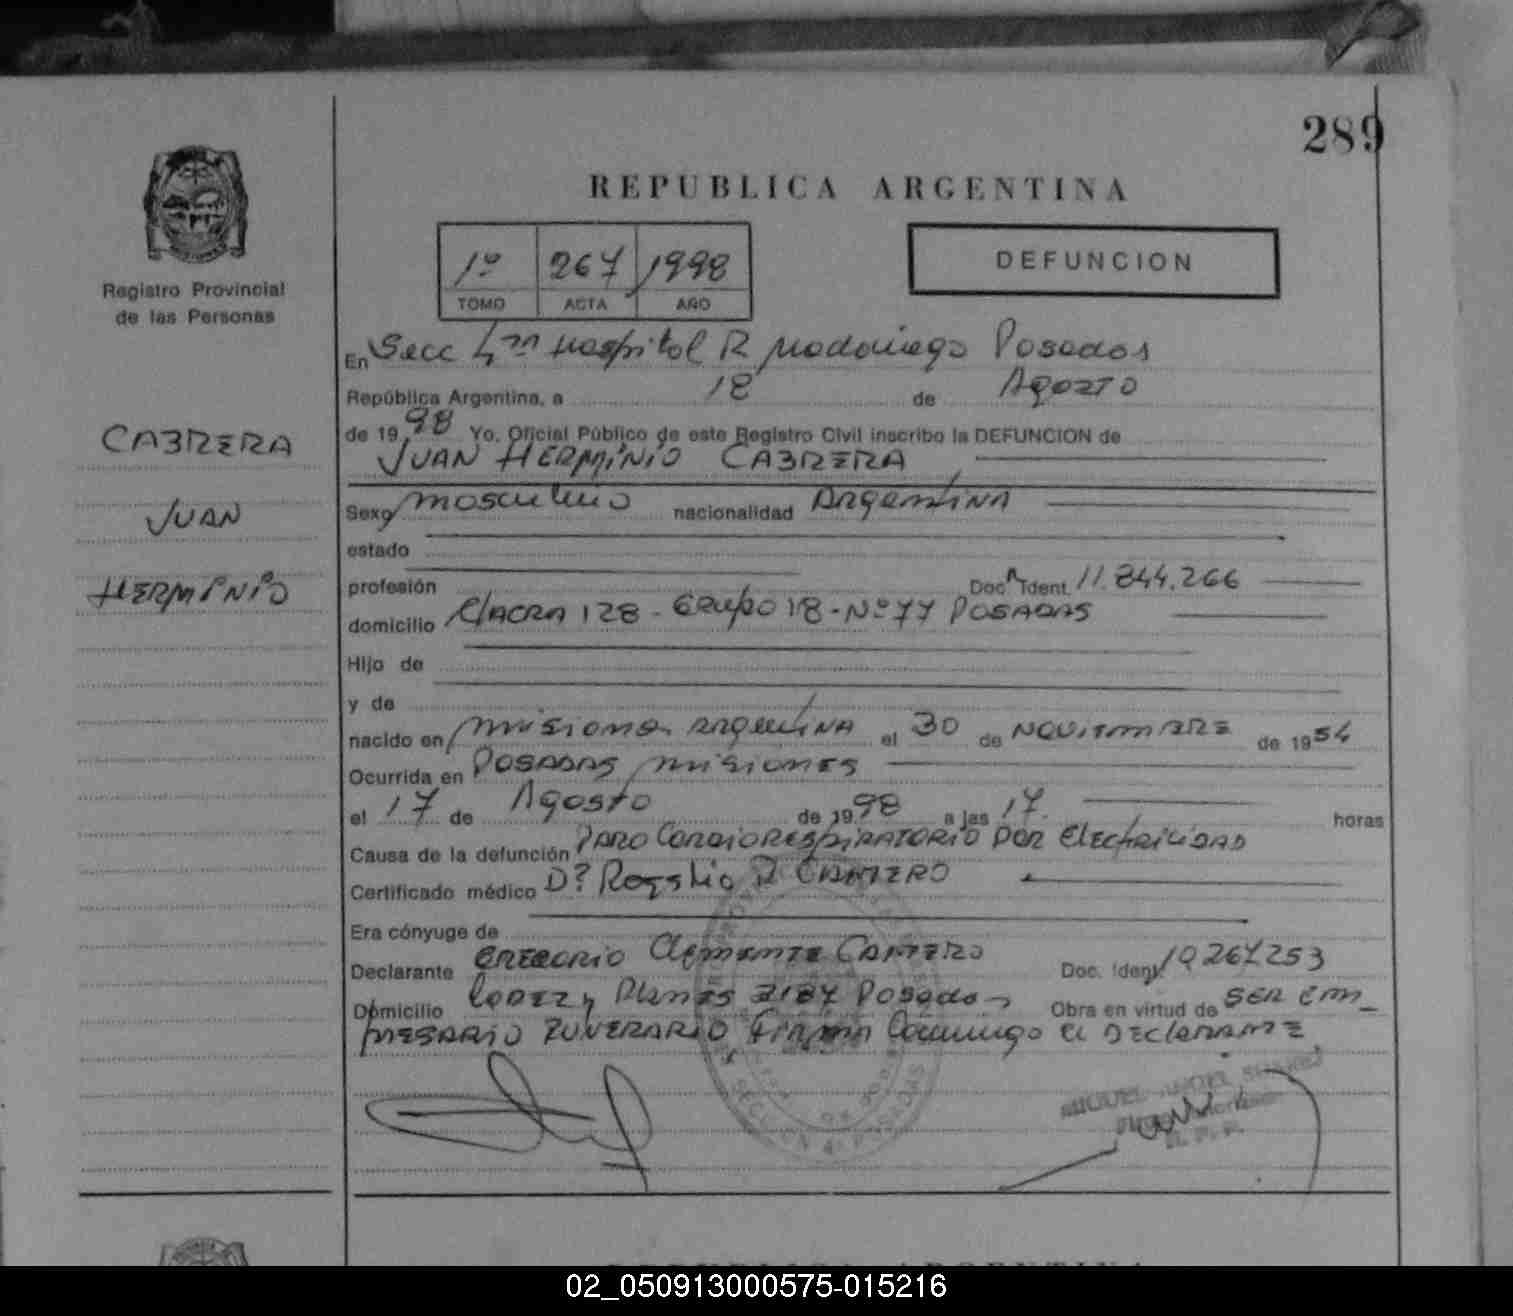 289
REPUBLICA ARGENTINA
1º 267 1998
TOMO ACTA AÑO
DEFUNCION
Registro Provincial
de las Personas
CABRERA
JUAN
HERMINIO
En Secc 4ta Hospital R Madariaga Posadas
República Argentina, a 18 de Agosto
de 1998 Yo, Oficial Público de este Registro Civil inscribo la DEFUNCION de
JUAN HERMINIO CABRERA
Sexo masculino nacionalidad Argentina
estado
profesión Doc. Ident. 11.844.266
domicilio CHACRA 128 - Grupo 18 - Nº 77 POSADAS
Hijo de
y de
nacido en misiones Argentina el 30 de NOVIEMBRE de 1954
Ocurrida en POSADAS misiones
el 17 de Agosto de 1998 a las 17 horas
Causa de la defunción PARO CARDIORESPIRATORIO POR Electricidad
Certificado médico Dr Rogelio R CANTERO
Era cónyuge de
Declarante GREGORIO Clemente CANTERO Doc. Ident. 10267253
Domicilio LOPEZ y Planes Posadas Obra en virtud de SER EM_
PRESARIO FUNERARIO Firma Conmigo el DECLARANTE
MIGUEL ANGEL
02_050913000575-015216